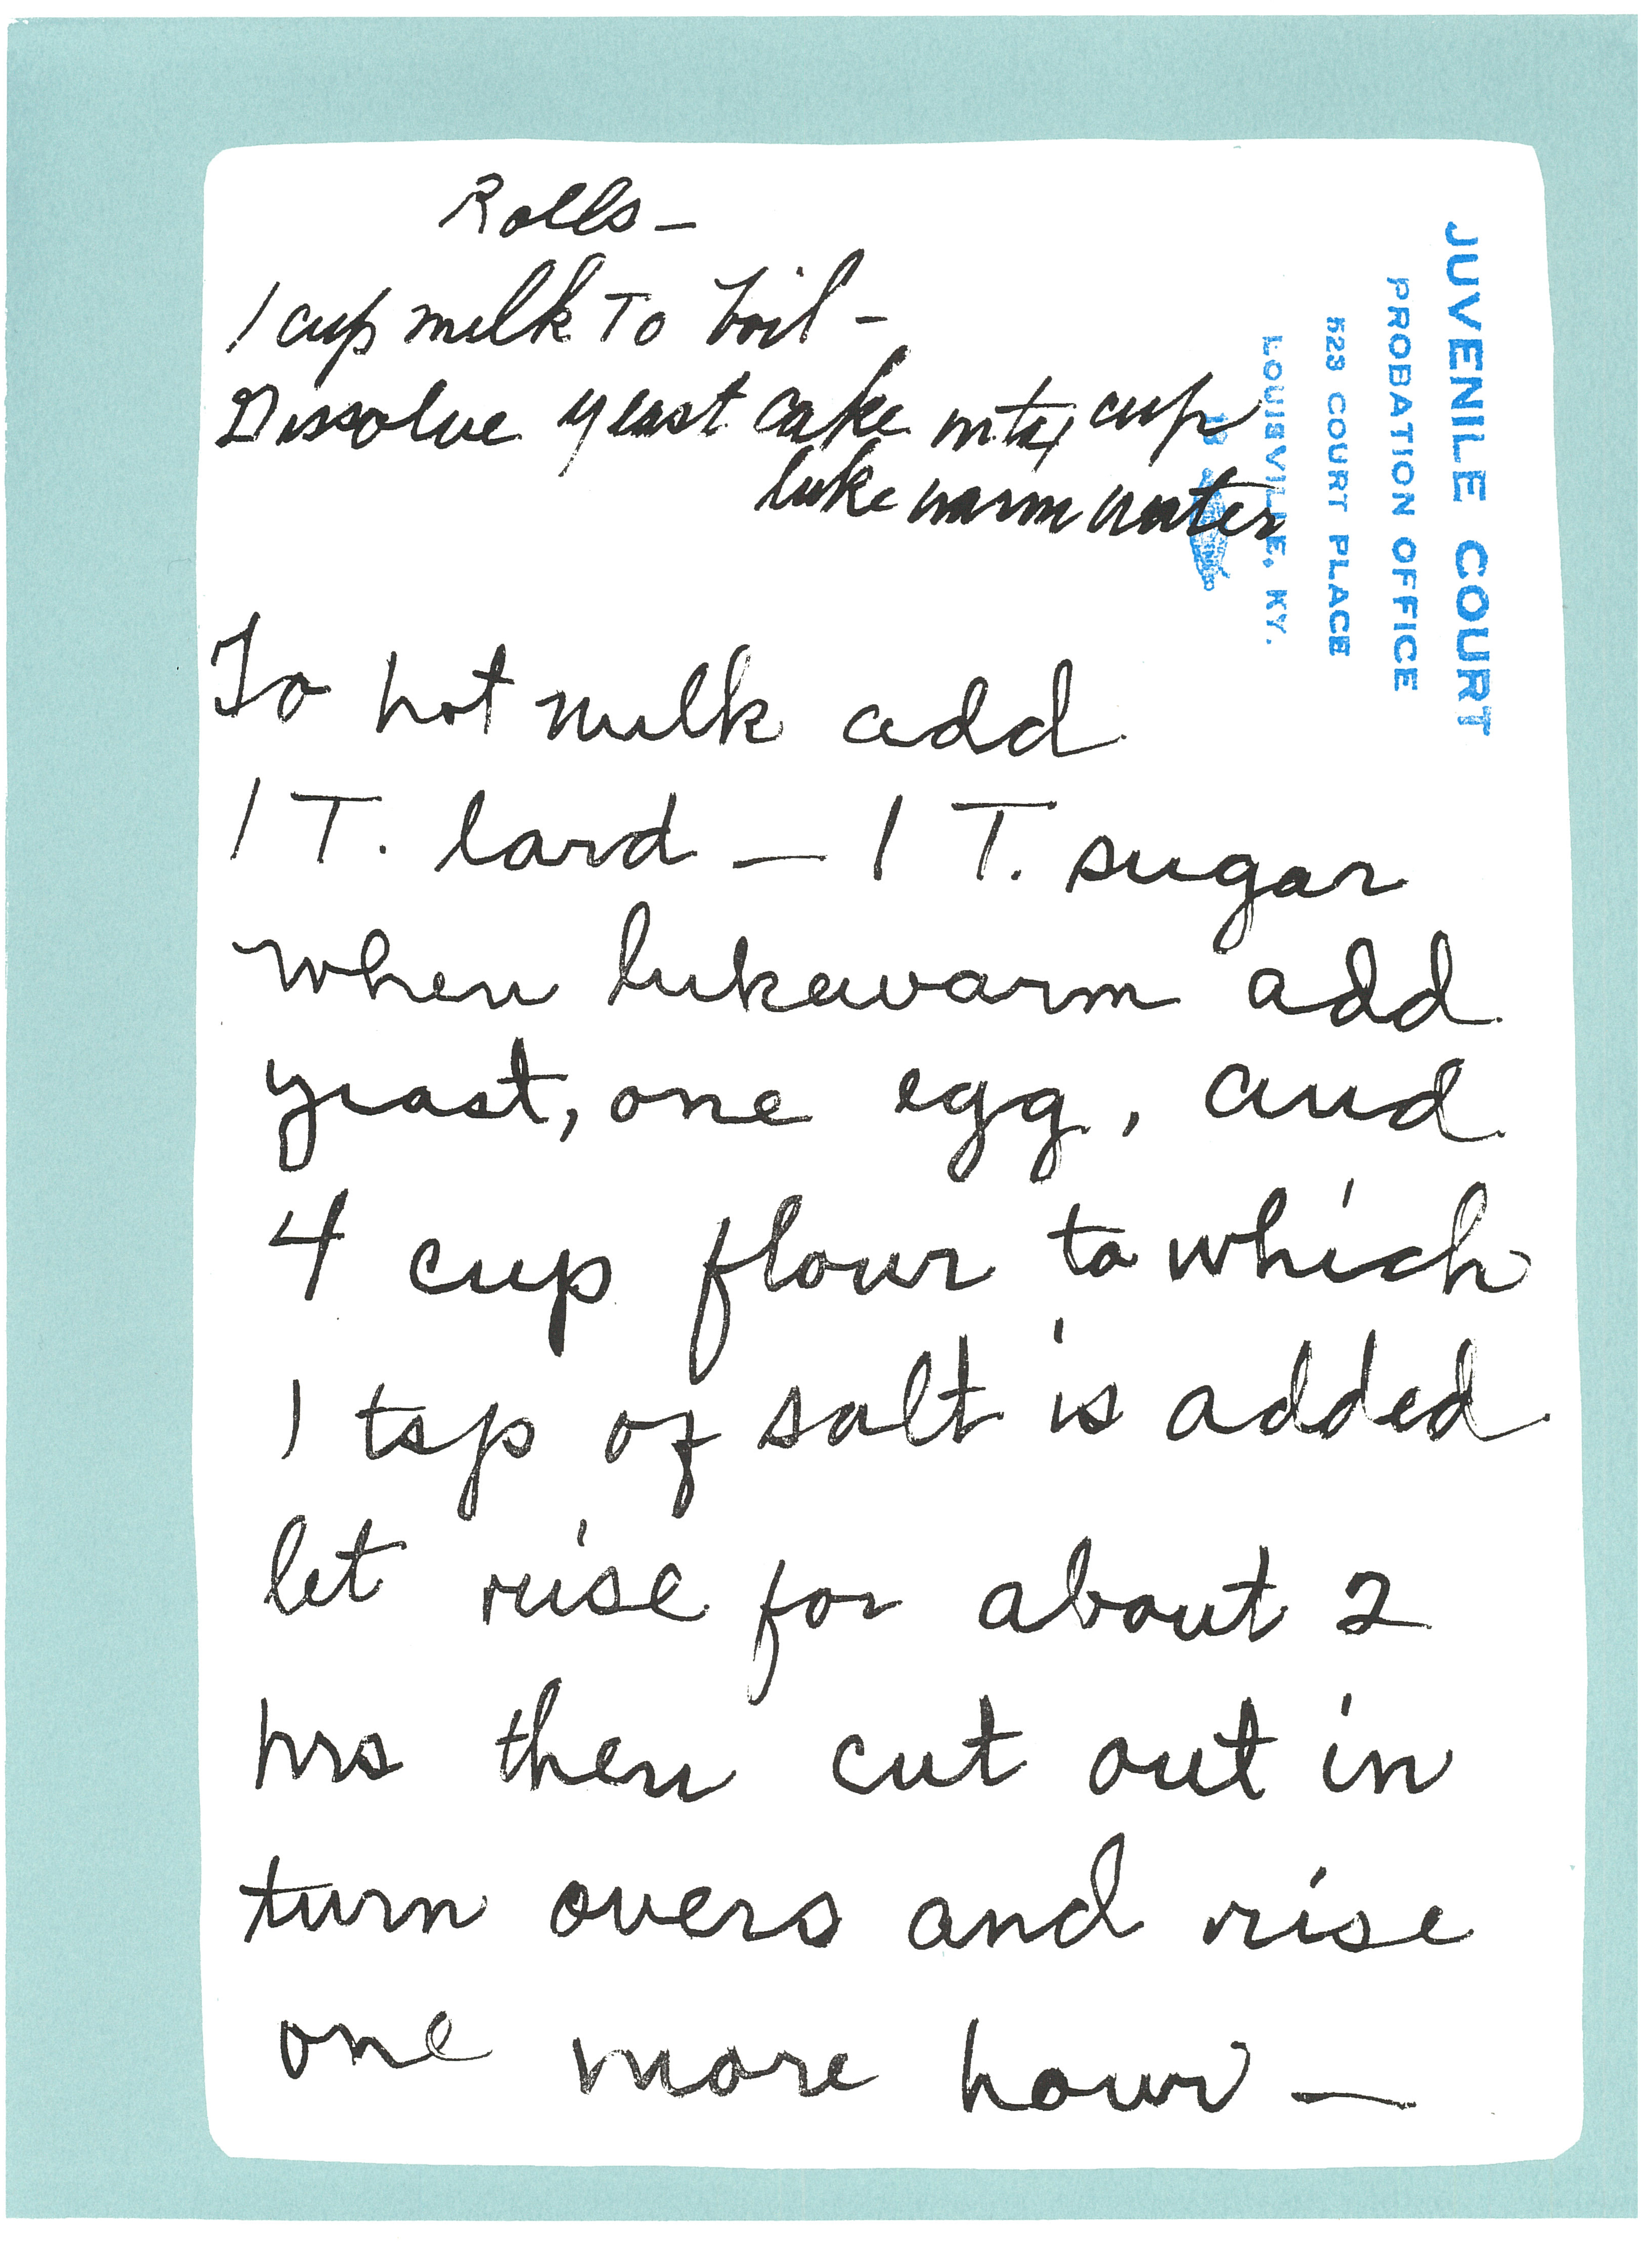 Rolls –
1 cup milk To boil –
Dissolve yeast cake into cup
luke warm water
To hot milk add
1 T. lard – 1 T. sugar
when lukewarm add
yeast, one egg, and
4 cup flour to which
1 tsp of salt is added
let rise for about 2
hrs then cut out in
turn overs and rise
one more hour –
JUVENILE COURT
PROBATION OFFICE
523 COURT PLACE
LOUISVILLE, KY.